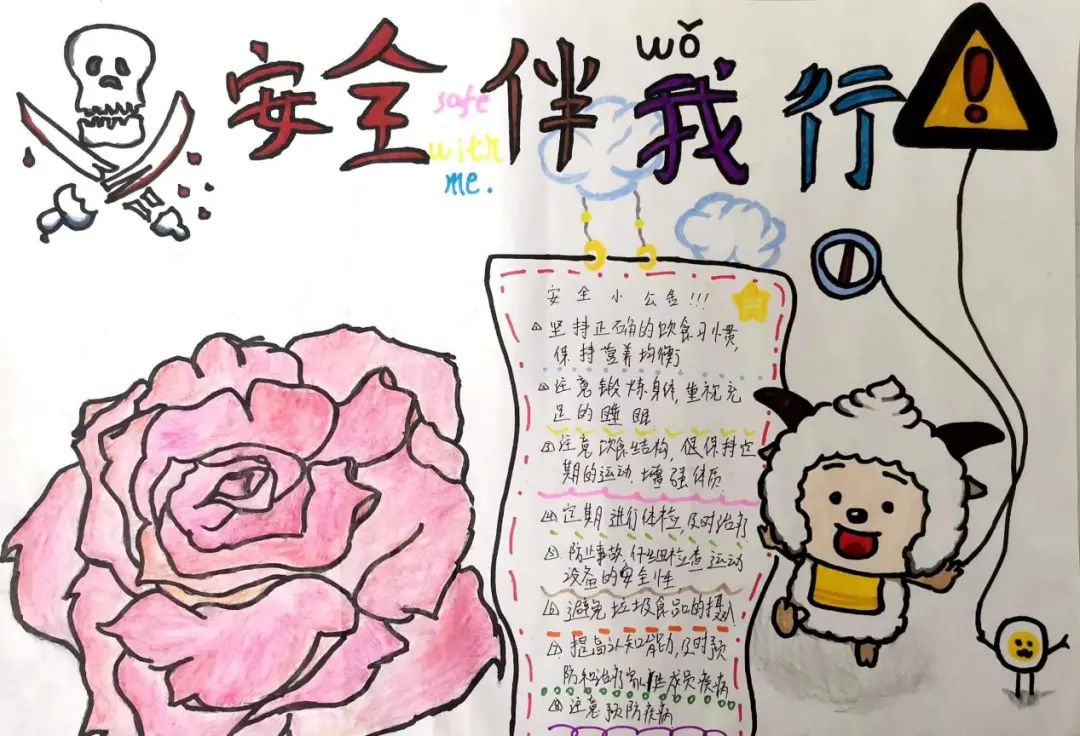 wǒ
安全伴我行
safe
with
me.
安全小公告!!!
①坚持正确的饮食习惯,
保持营养均衡
②注意锻炼身体,重视充
足的睡眠
③注意饮食结构,保持定
期的运动,增强体质
④定期进行体检,及时治疗
⑤防止事故,仔细检查运动
设备的安全性
⑥避免垃圾食品的摄入
⑦提高认知能力,及时预
防和治疗家庭成员疾病
⑧注意预防疾病